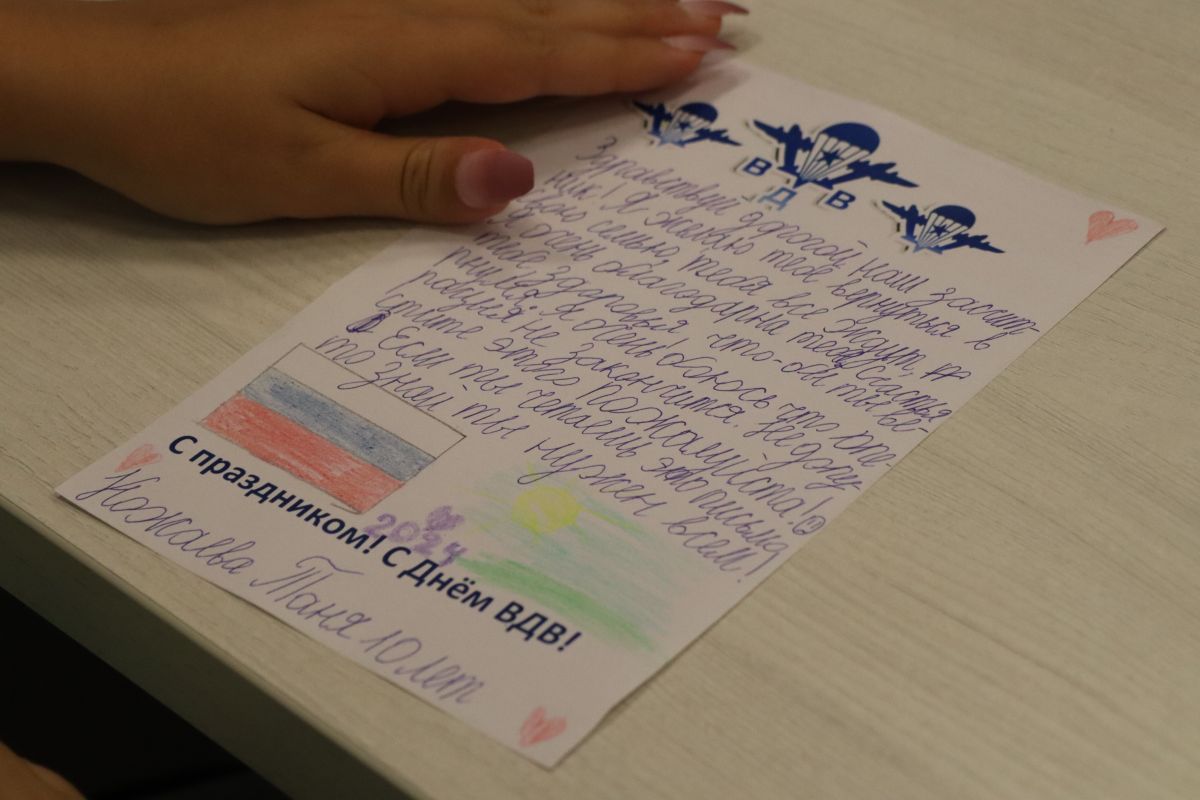 В Д В
Здравствуй дорогой наш защит-
ник! Я желаю тебе вернуться в
свою семью, тебя все ждут, я
очень благодарна тебе, счастья
тебе, здоровья, что-бы ты ве-
рнулся. Я очень боюсь что опе-
рация не закончится. Недопу-
стите этого пожалуйста!
Если ты четаешь это письмо
то знай ты нужен всем!
2024
С праздником! С Днём ВДВ!
Таня 10 лет